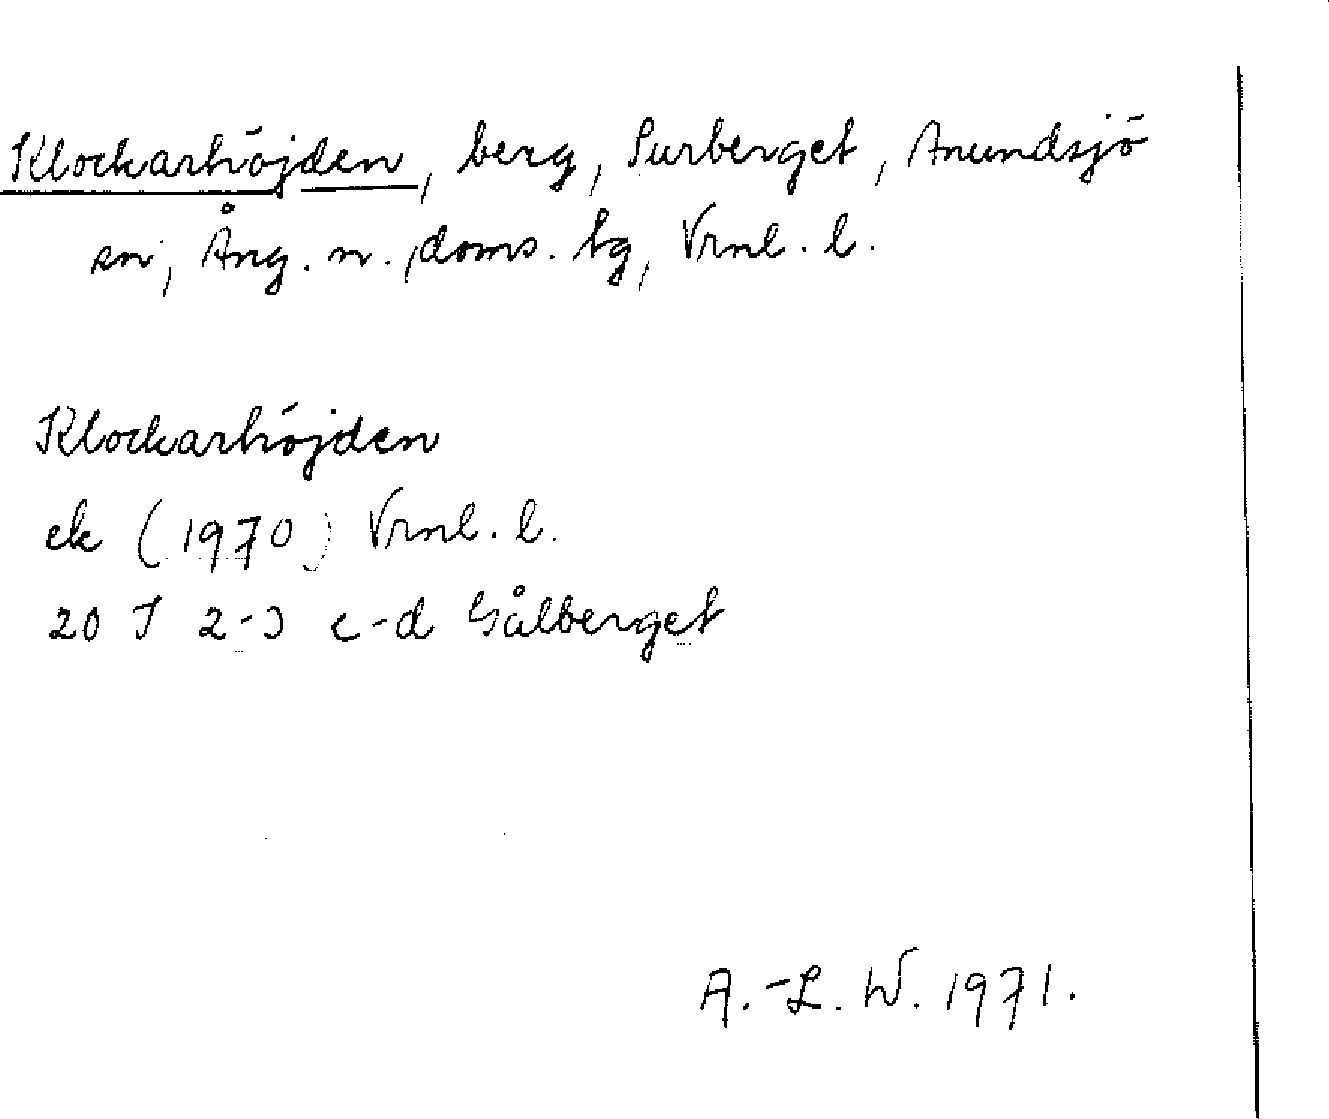 Klockarhöjden, berg, Surberget, Anundsjö
sn, Ång. n., doms. tg, Vrnl. l.
Klockarhöjden
ek (1970) Vrnl. l.
20 I 2-3 c-d Gålberget
A.-L. W. 1971.